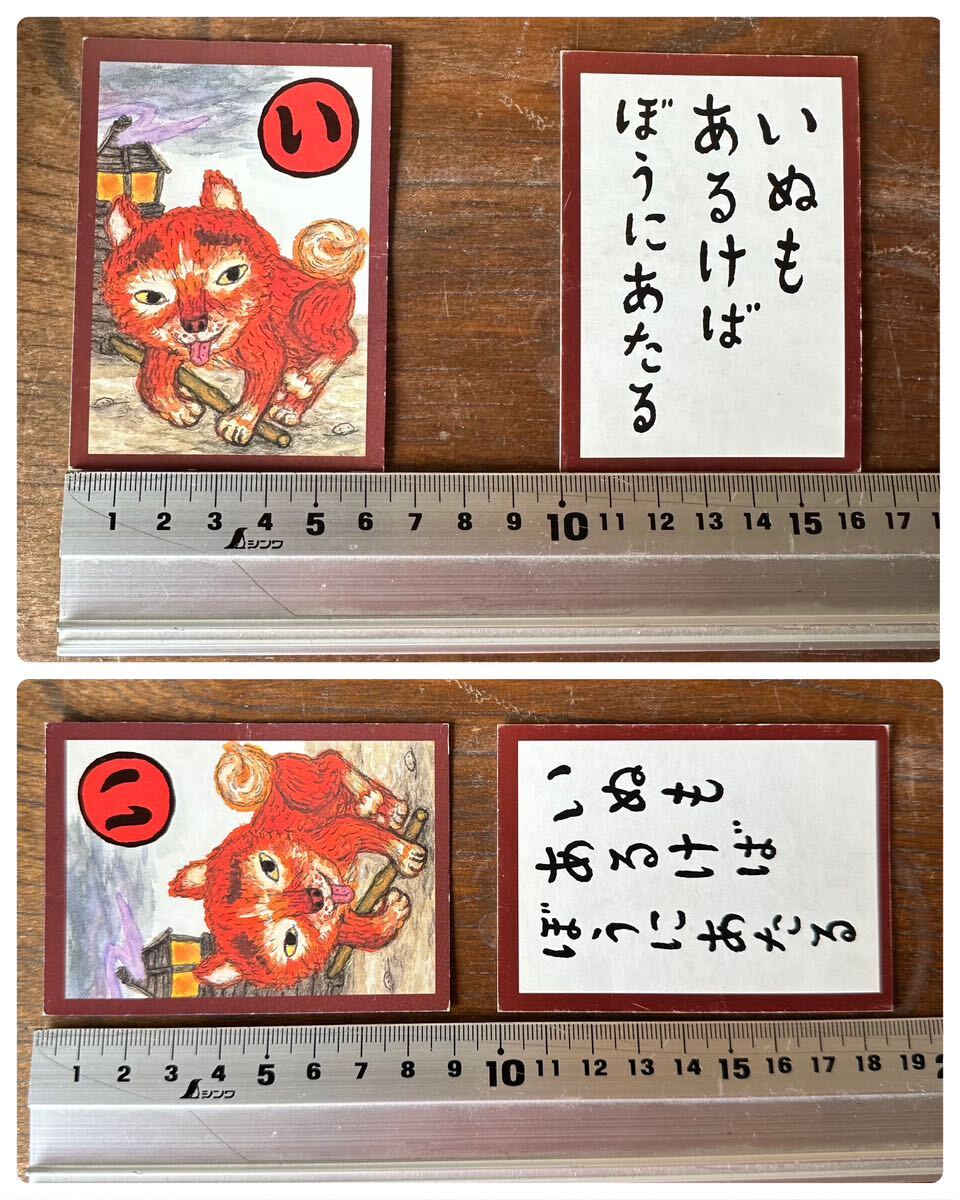 い
いぬも
あるけば
ぼうにあたる
1 2 3 4 5 6 7 8 9 10 11 12 13 14 15 16 17
シンワ
い
いぬも
あるけば
ぼうにあたる
1 2 3 4 5 6 7 8 9 10 11 12 13 14 15 16 17 18 19 2
シンワ